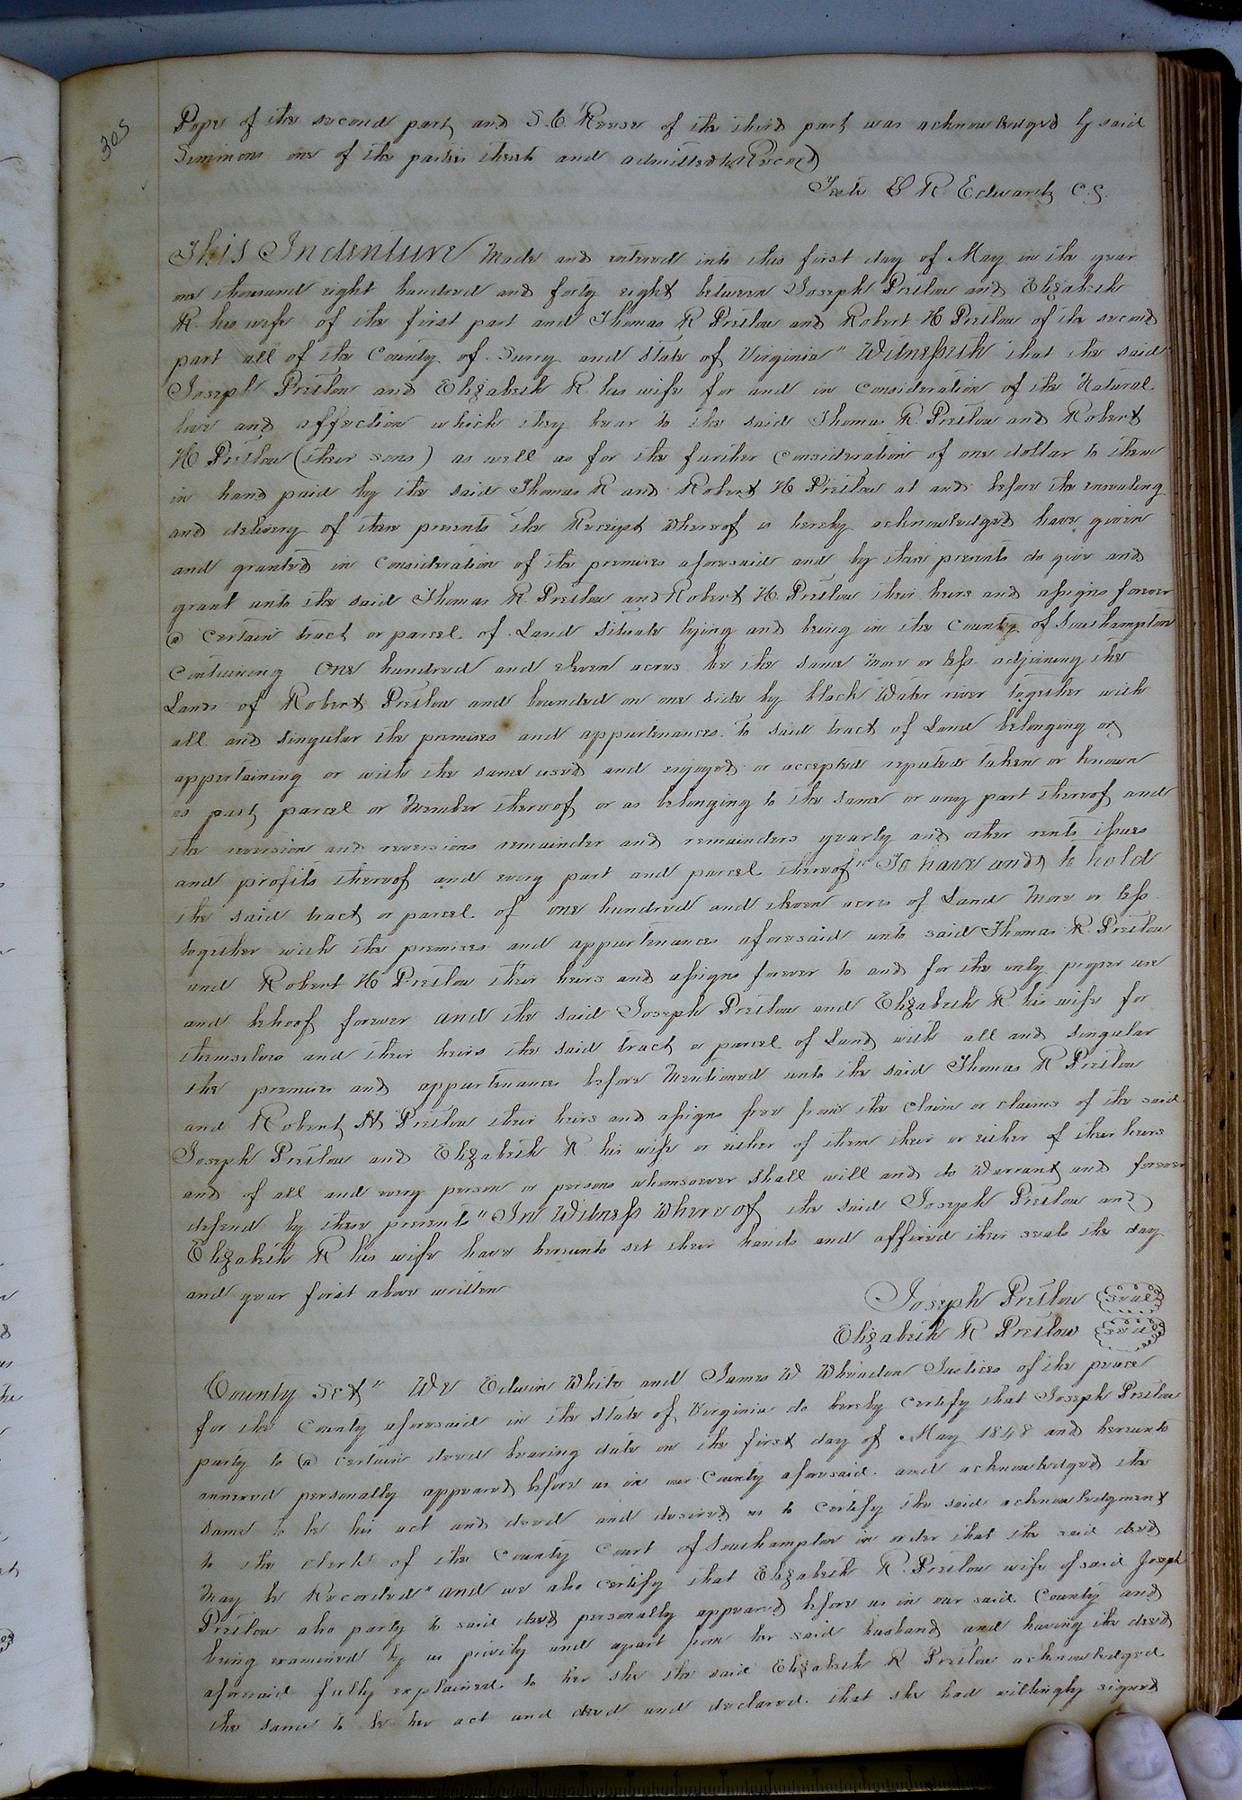 305
Pope of the second part, and S. C. Reese of the third part was acknowledged by said
Simmons one of the parties thereto and admitted to Record
Teste L R Edwards C.S.
This Indenture Made and entered into this first day of May in the year
one thousand eight hundred and forty eight between Joseph Pretlow and Elizabeth
R. his wife of the first part and Thomas R Pretlow and Robert H Pretlow of the second
part all of the County of Surry and State of Virginia" Witnesseth that the said
Joseph Pretlow and Elizabeth R his wife for and in consideration of the Natural
love and affection which they bear to the said Thomas R. Pretlow and Robert
H Pretlow (their sons) as well as for the further consideration of one dollar to them
in hand paid by the said Thomas R and Robert H Pretlow at and before the ensealing
and delivery of these presents the Receipt whereof is hereby acknowledged have given
and granted in consideration of the premises aforesaid and by these presents do give and
grant unto the said Thomas R Pretlow and Robert H. Pretlow their heirs and assigns forever
a certain tract or parcel of Land situate lying and being in the County of Southampton
containing One hundred and eleven acres be the same more or less adjoining the
Lands of Robert Pretlow and bounded on one side by black Water river together with
all and singular the premises and appurtenances to said tract of Land belonging or
appertaining or with the same used and enjoyed or accepted reputed taken or known
as part, parcel or Member thereof or as belonging to the same or any part thereof, and
the reversion and reversions remainder and remainders yearly and other rents issues
and profits thereof and every part and parcel thereof" To have and to hold
the said tract or parcel of one hundred and eleven acres of Land More or less
together with the premises and appurtenances aforesaid unto said Thomas R Pretlow
and Robert H Pretlow their heirs and assigns forever to and for the only proper use
and behoof forever and the said Joseph Pretlow and Elizabeth R his wife for
themselves and their heirs the said tract or parcel of Land with all and singular
the premises and appurtenances before Mentioned unto the said Thomas R Pretlow
and Robert H Pretlow their heirs and assigns free from the claim or claims of the said
Joseph Pretlow and Elizabeth R his wife or either of them their or either of their heirs
and of all and every person or persons whomsoever shall will and do Warrant and forever
defend by these presents" In Witness Whereof the said Joseph Pretlow and
Elizabeth R his wife have hereunto set their hands and affixed their seals the day
and year first above written
Joseph Pretlow seal
Elizabeth R Pretlow seal
County Sct" We Edwin White and James W Wheadon Justices of the peace
for the County aforesaid in the State of Virginia do hereby certify that Joseph Pretlow
party to a certain deed bearing date on the first day of May 1848 and hereunto
annexed personally appeared before us in our County aforesaid and acknowledged the
same to be his act and deed and desired us to certify the said acknowledgment
to the clerk of the County Court of Southampton in order that the said deed
May be Recorded" and we also certify that Elizabeth R. Pretlow wife of said Joseph
Pretlow also party to said deed personally appeared before us in our said County and
being examined by us privily and apart from her said husband and having the deed
aforesaid fully explained to her she the said Elizabeth R Pretlow acknowledged
the same to be her act and deed and declared that she had willingly signed